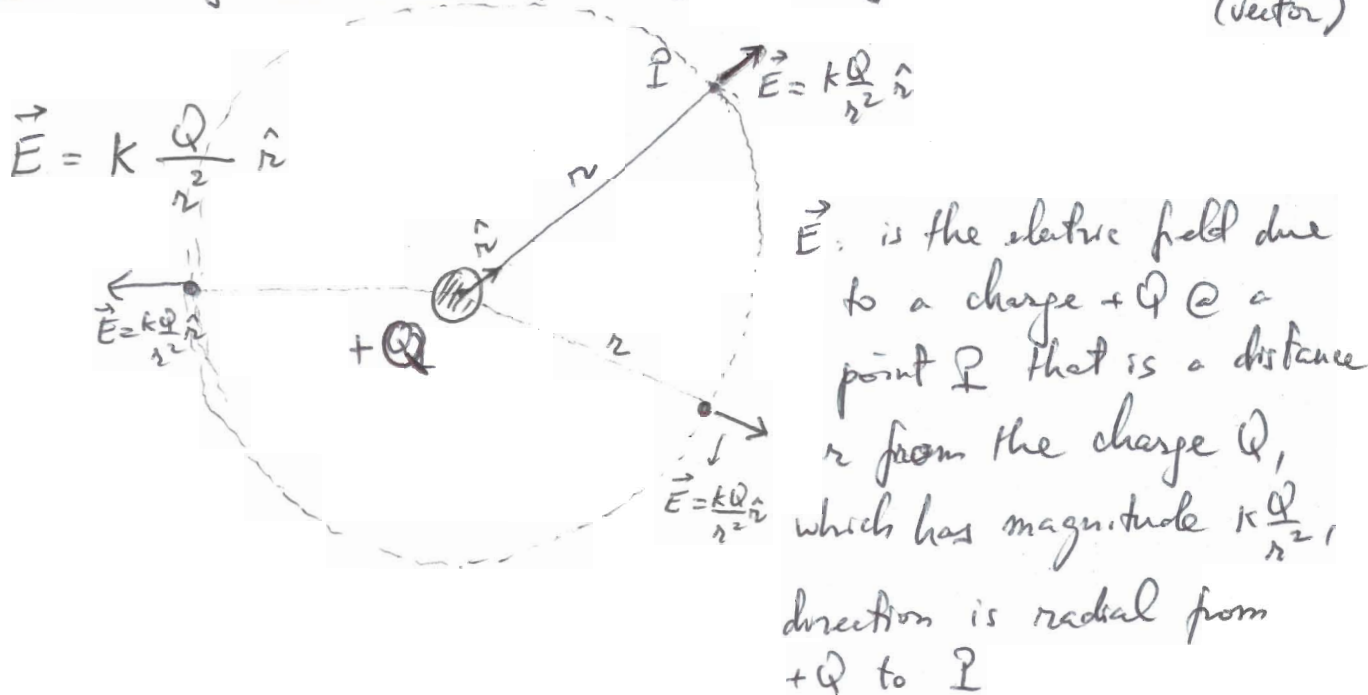 (vector)
P
E⃗ = k Q/r² r̂
E⃗ = k Q/r² r̂
r
r̂
E⃗ = kQ/r² r̂
+Q
r
E⃗ = kQ/r² r̂
E⃗: is the electric field due
to a charge +Q @ a
point P that is a distance
r from the charge Q,
which has magnitude k Q/r²,
direction is radial from
+Q to P